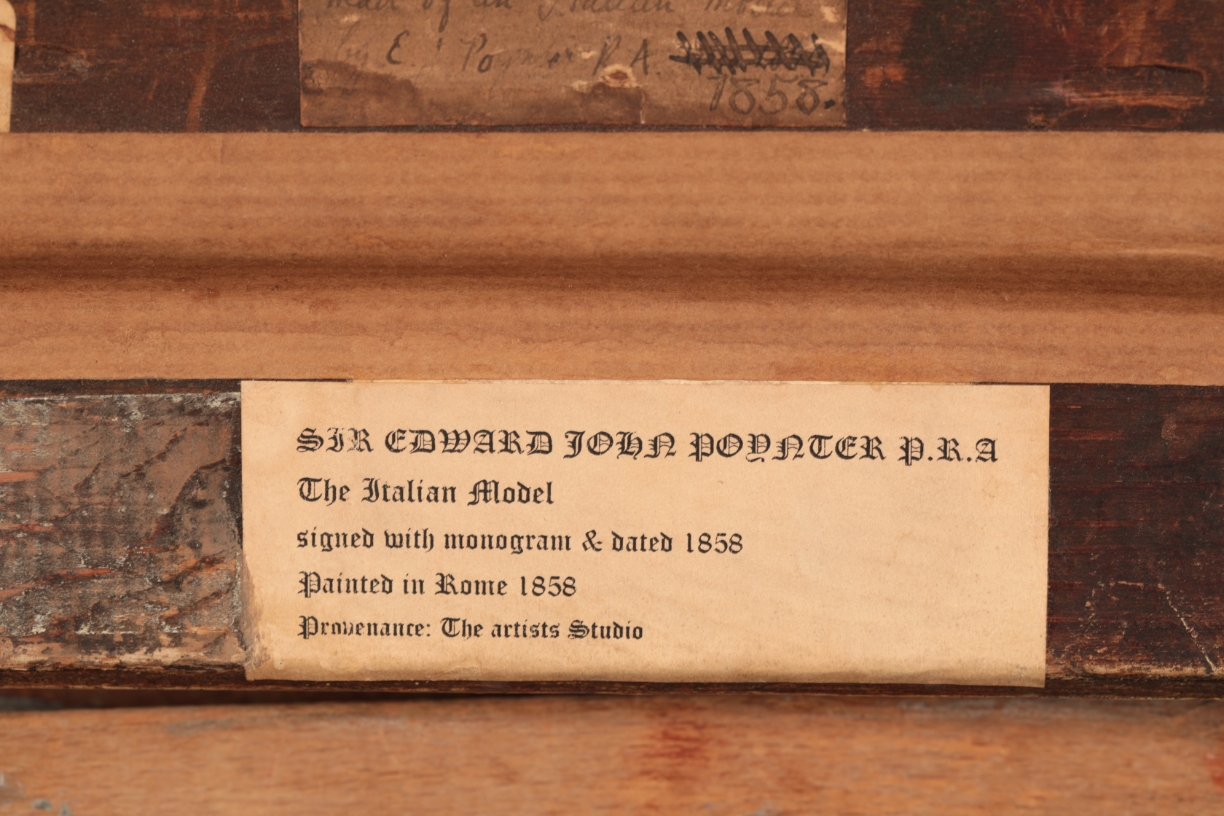 Head of an Italian Model
by E. J. Poynter P.R.A.
1858.
SIR EDWARD JOHN POYNTER P.R.A
The Italian Model
signed with monogram & dated 1858
Painted in Rome 1858
Provenance: The artists Studio